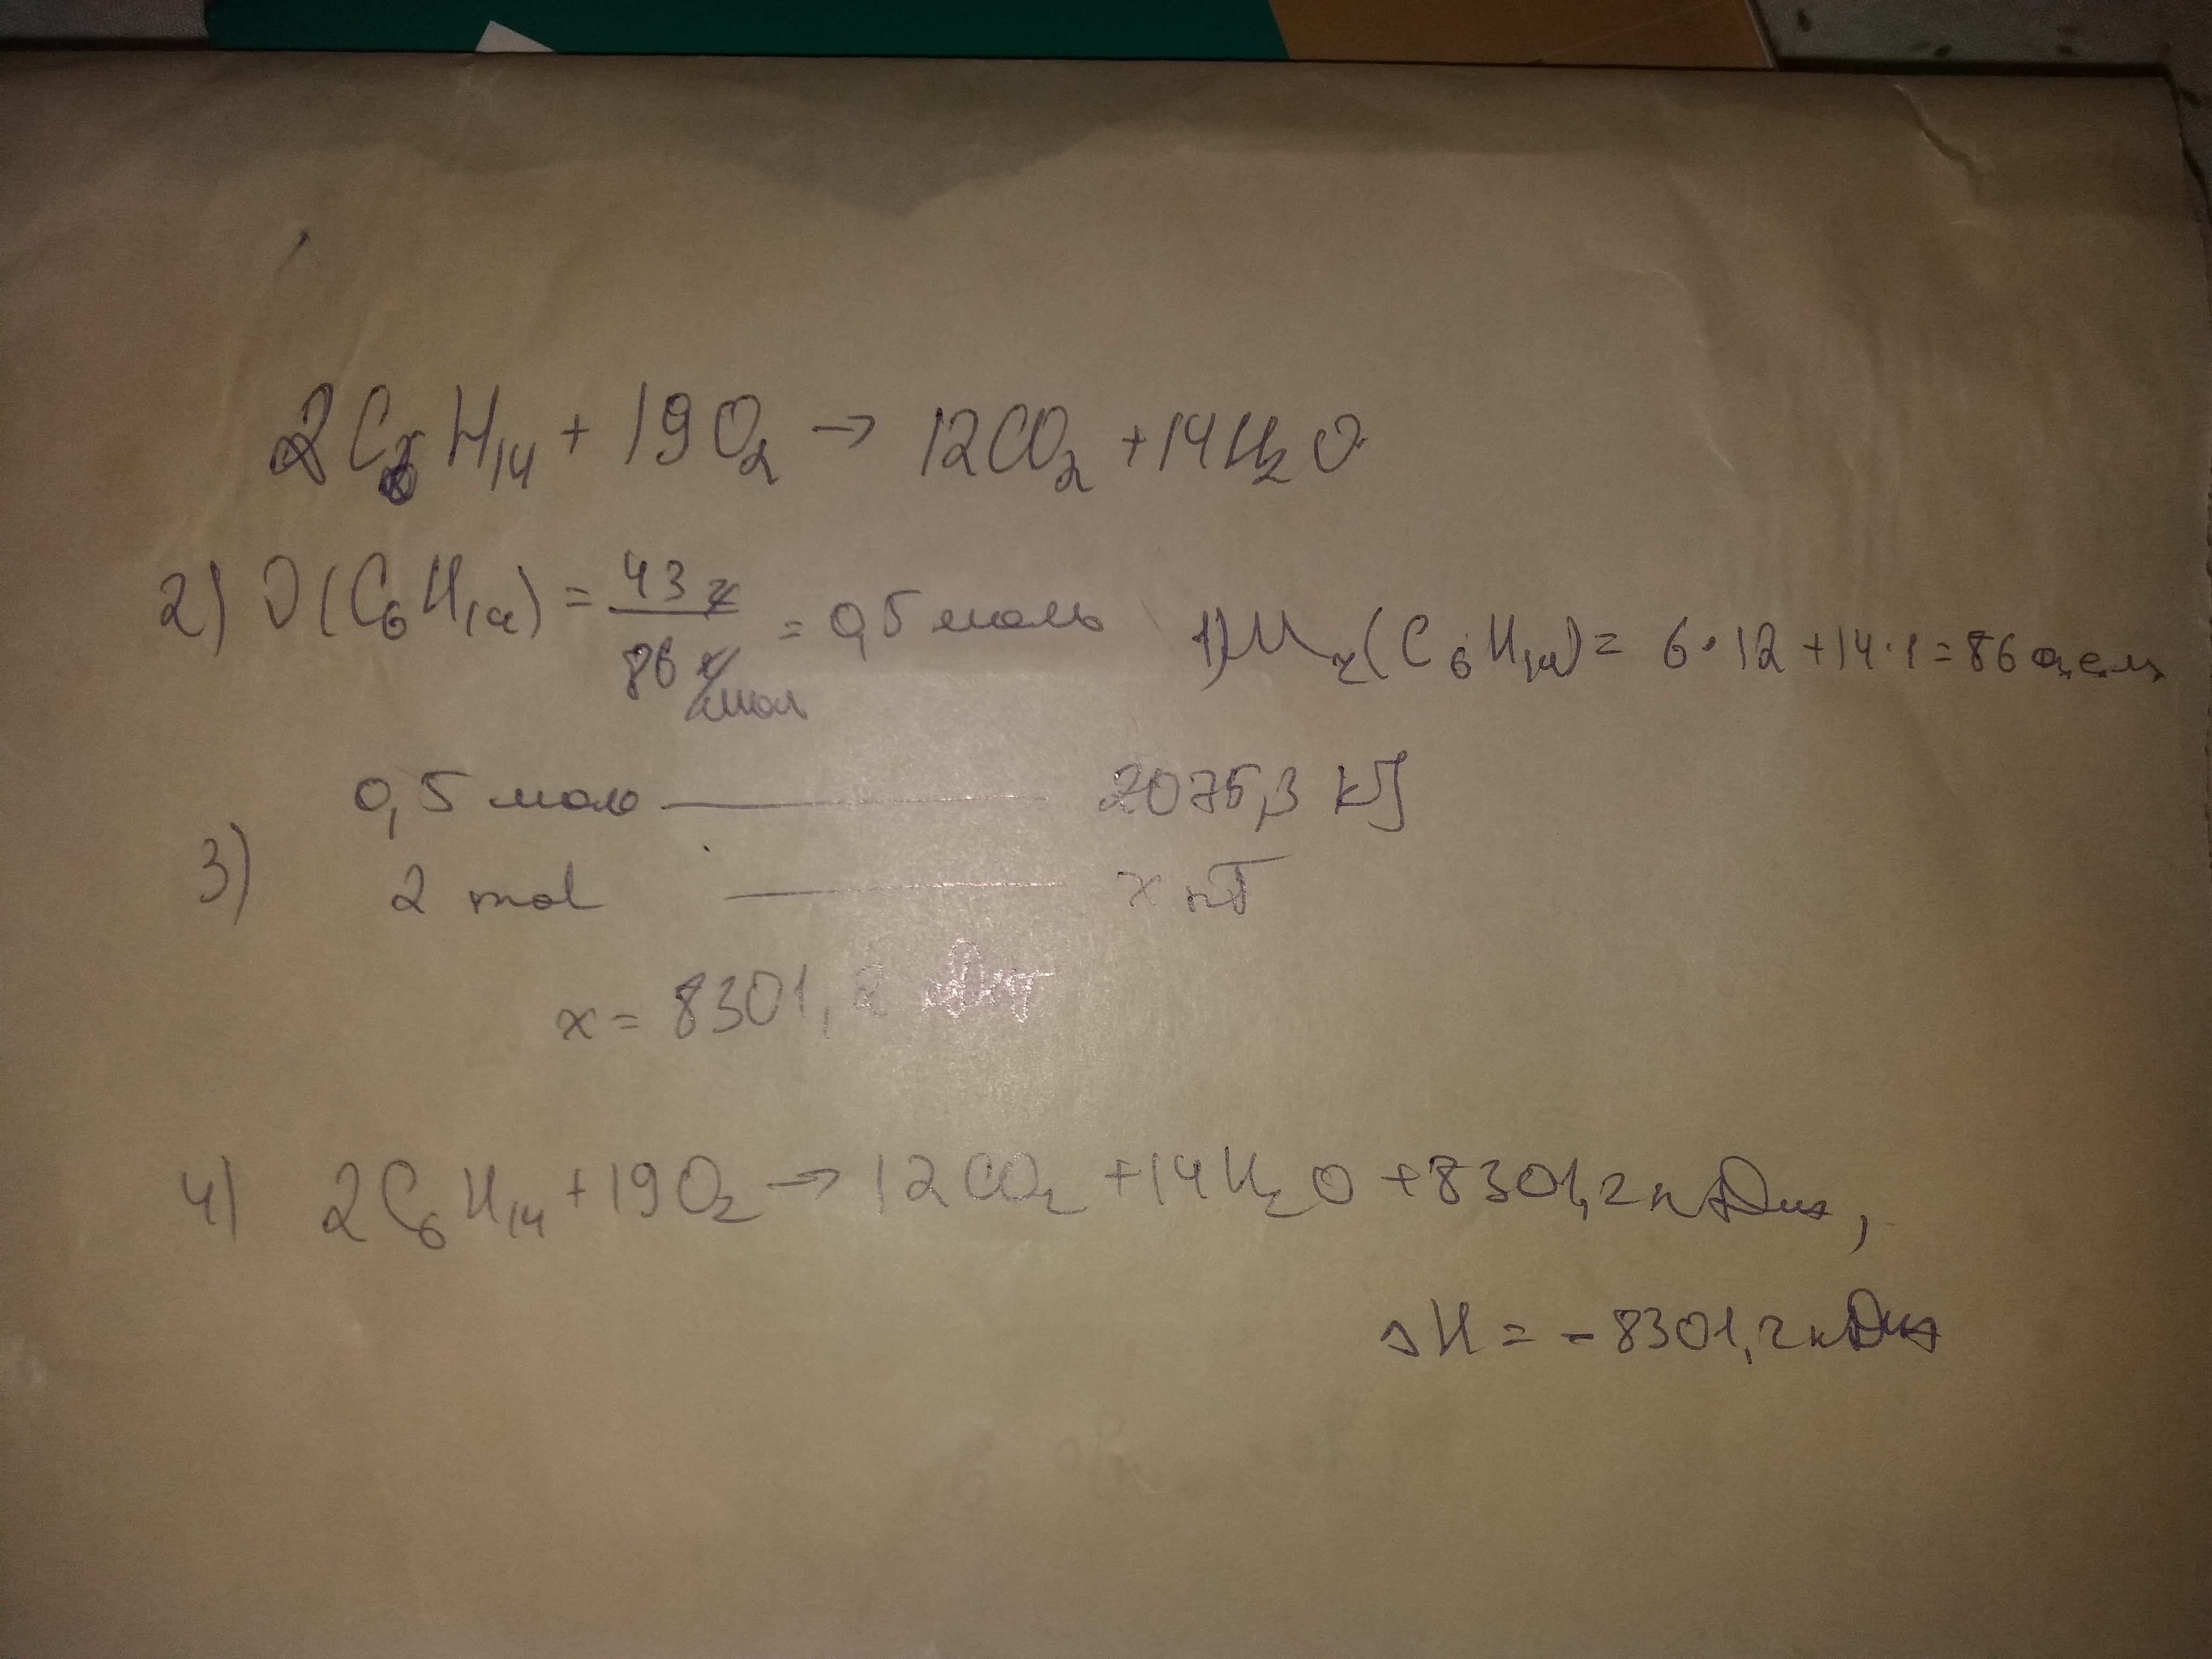 2C₆H₁₄ + 19O₂ → 12CO₂ + 14H₂O
2) ν(C₆H₁₄) = 43 г / 86 г/мол = 0,5 моль
1) Mr(C₆H₁₄) = 6·12 + 14·1 = 86 а.е.м.
0,5 моль — 2075,3 kJ
3)
2 mol — x кJ
x = 8301,2 кДж
4) 2C₆H₁₄ + 19O₂ → 12CO₂ + 14H₂O + 8301,2 кДж,
ΔH = -8301,2 кДж